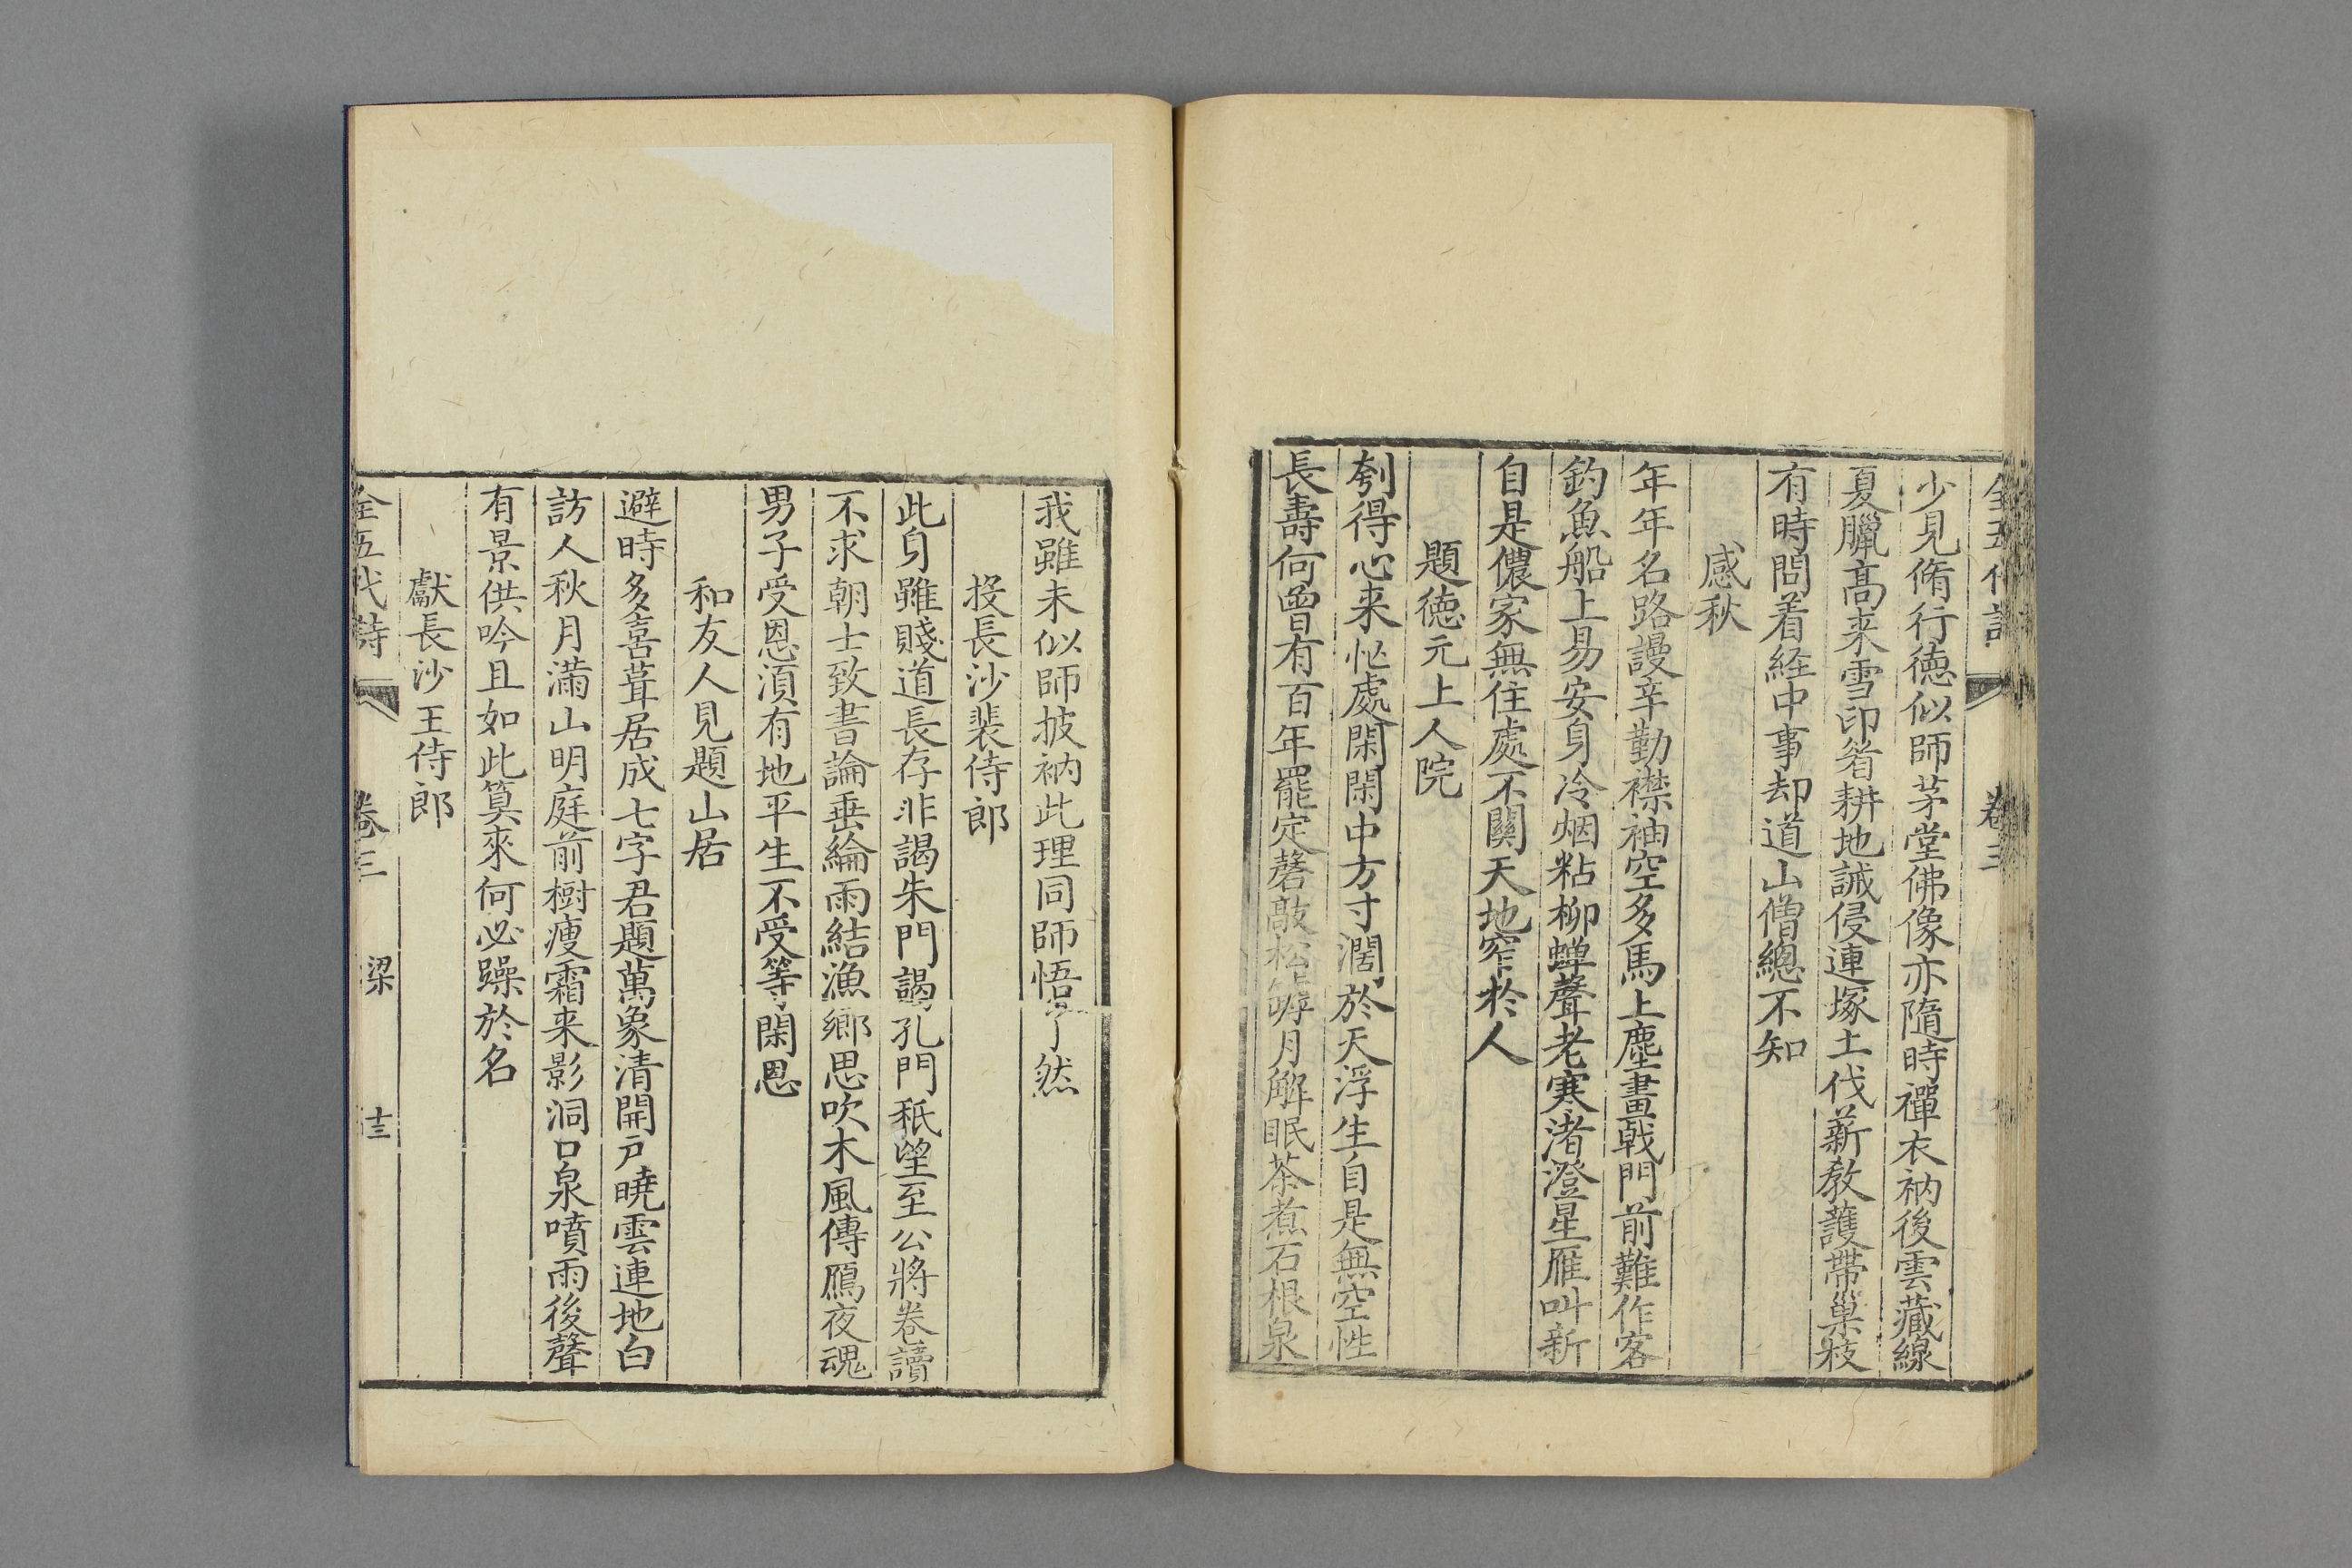 全五代詩 卷三
少見脩行徳似師茅堂佛像亦隨時禪衣衲後雲藏線
夏臘高来雪印眉耕地誡侵連塚土伐薪教護帶巢枝
有時問着経中事却道山僧總不知
感秋
年年名路謾辛勤襟袖空多馬上塵畫戟門前難作客
釣魚船上易安身冷烟粘柳蟬聲老寒渚澄星雁叫新
自是儂家無住處不關天地窄於人
題徳元上人院
刳得心来忙處閑閑中方寸濶於天浮生自是無空性
長壽何曾有百年罷定磬敲松罅月解眠茶煮石根泉
我雖未似師披衲此理同師悟了然
投長沙裴侍郎
此身雖賤道長存非謁朱門謁孔門秖望至公將卷讀
不求朝士致書論垂綸雨結漁鄉思吹木風傳鴈夜魂
男子受恩湏有地平生不受等閑恩
和友人見題山居
避時多喜葺居成七字君題萬象清開戸曉雲連地白
訪人秋月滿山明庭前樹瘦霜来影洞口泉噴雨後聲
有景供吟且如此算來何必躁於名
獻長沙王侍郎
全五代詩 卷三 梁 十三